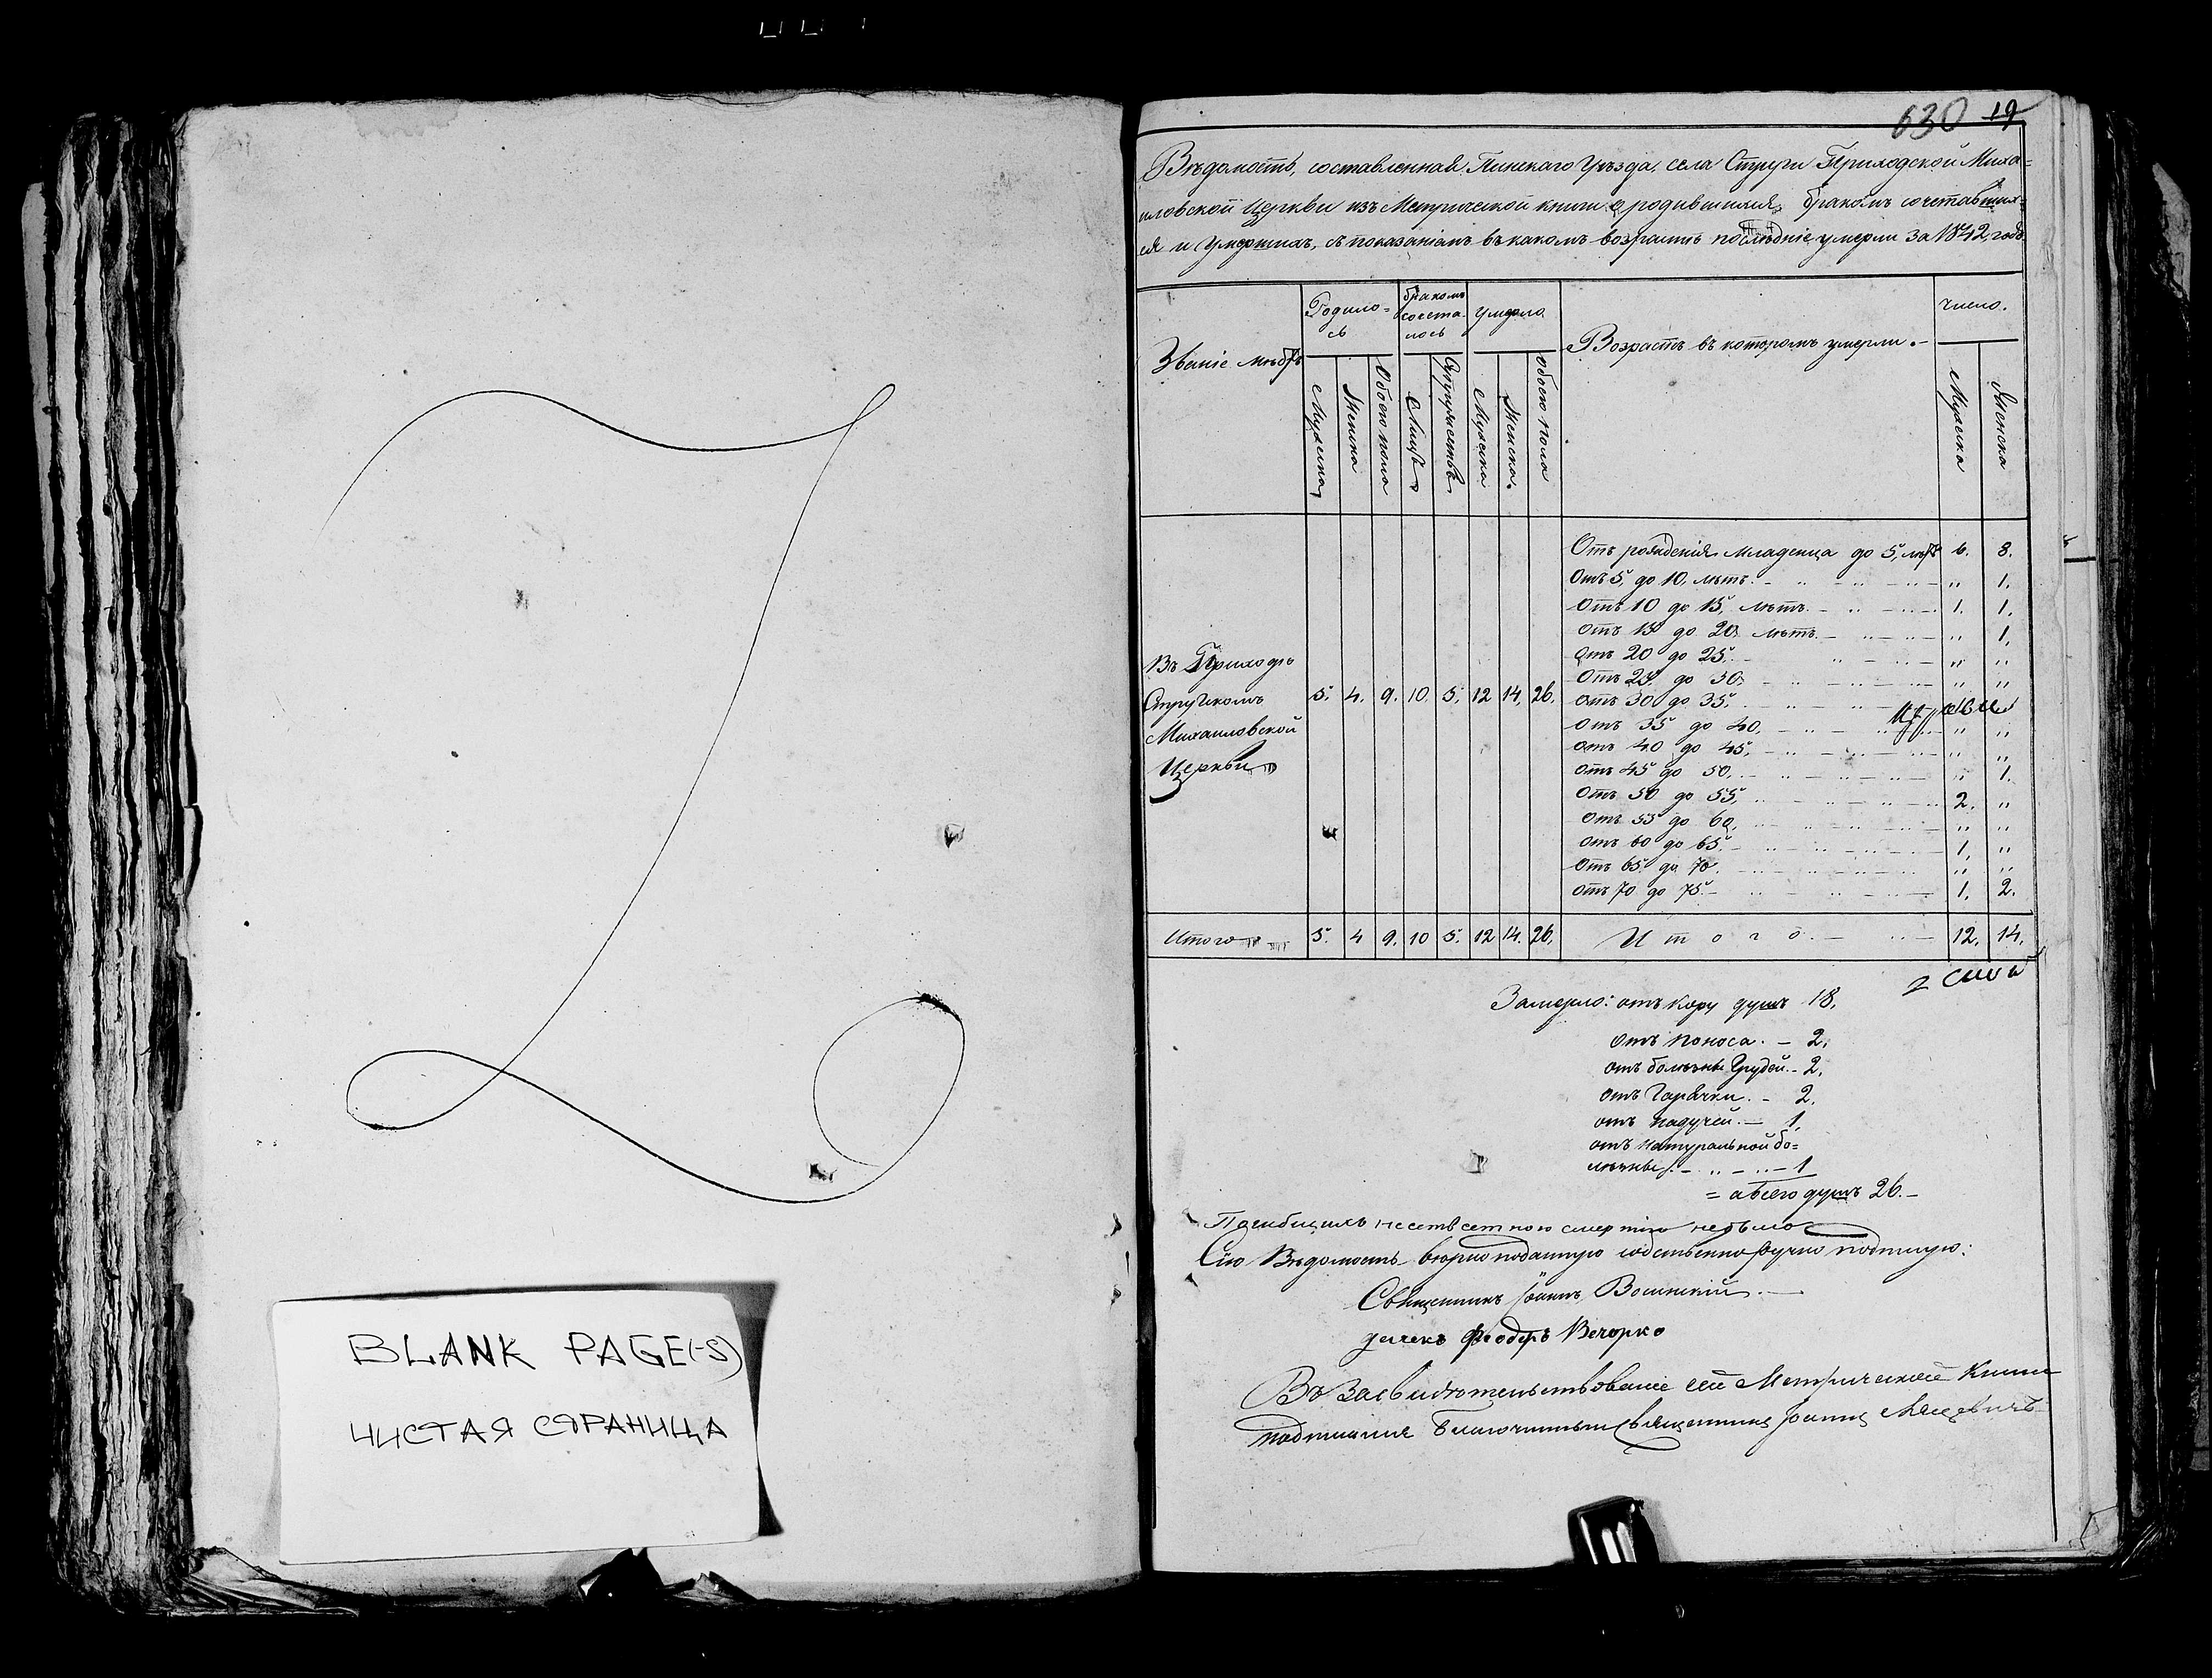 BLANK PAGE(-S)
ЧИСТАЯ СТРАНИЦА
630 19
Вѣдомость, составленная Пинскаго Уѣзда, села Струги Приходской Миха=
иловской Церкви изъ Метрической книги о родившихся, бракомъ сочетавших=
ся и Умершихъ, съ показаніемъ въ какомъ возрастѣ послѣдніе умерли за 1842, годъ
Званіе мѣстъ
Родило=
сь
бракомъ
сочета-
лось
умерло
Возрастъ въ которомъ умерли.-
число.
Мужеска
Женска
Обоего пола
Лицъ
Супружествъ
Мужеска
Женска.
Обоего пола
Мужеска
Женска
Отъ рожденія младенца до 5, лѣтъ 6. 8.
Отъ 5, до 10, лѣтъ. - „ 1.
Отъ 10 до 15, лѣтъ. - 1. 1.
Отъ 15 до 20 лѣтъ. - „ 1,
Отъ 20 до 25. - „ „
Отъ 25 до 30 - „ „
Отъ 30 до 35. - „ „
Отъ 35 до 40, - „ „
Отъ 40 до 45, - „ „
Отъ 45 до 50, - „ 1.
Отъ 50 до 55, - 2. „
Отъ 55 до 60, - „ „
Отъ 60 до 65. - 1, „
Отъ 65 до 70. - „ „
Отъ 70 до 75. - 1, 2.
Въ Приходѣ
Стругском
Михаиловской
Церкви
5. 4. 9. 10. 5. 12 14, 26.
Итого 5. 4 9. 10 5. 12 14. 26. Итого. - 12. 14.
Замерло: отъ кору душъ 18.
отъ поноса. - 2.
отъ болѣзны Грудей. - 2.
отъ Гарячки. - 2.
отъ падучей. - 1,
отъ натуральной бо=
лѣзны. - 1
= а всего душъ 26. -
смертію небыло
Сію Вѣдомость вѣрно поданную собственноручно подпишую:
Священникъ Іоаннъ
дьячекъ Феодоръ Вечорко
Въ Засвидѣтельствованіе сей Метрической Книги
подписался Благочинный Священникъ Іоаннъ